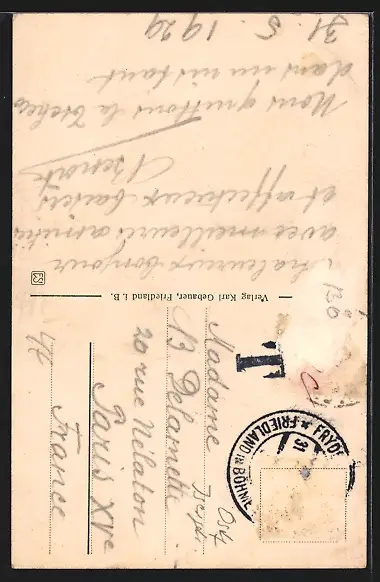 31. 5. 1929
Nous quittons la Tchéco
dans un instant
chaleureux bonjour
avec meilleures amitiés
et affectueux baisers
Verlag Karl Gebauer, Friedland i. B.
130
T
FRIEDLAND IN BÖHM * FRYD
31
Madame
B Delamette
20 rue Nélaton
Paris XVe
France